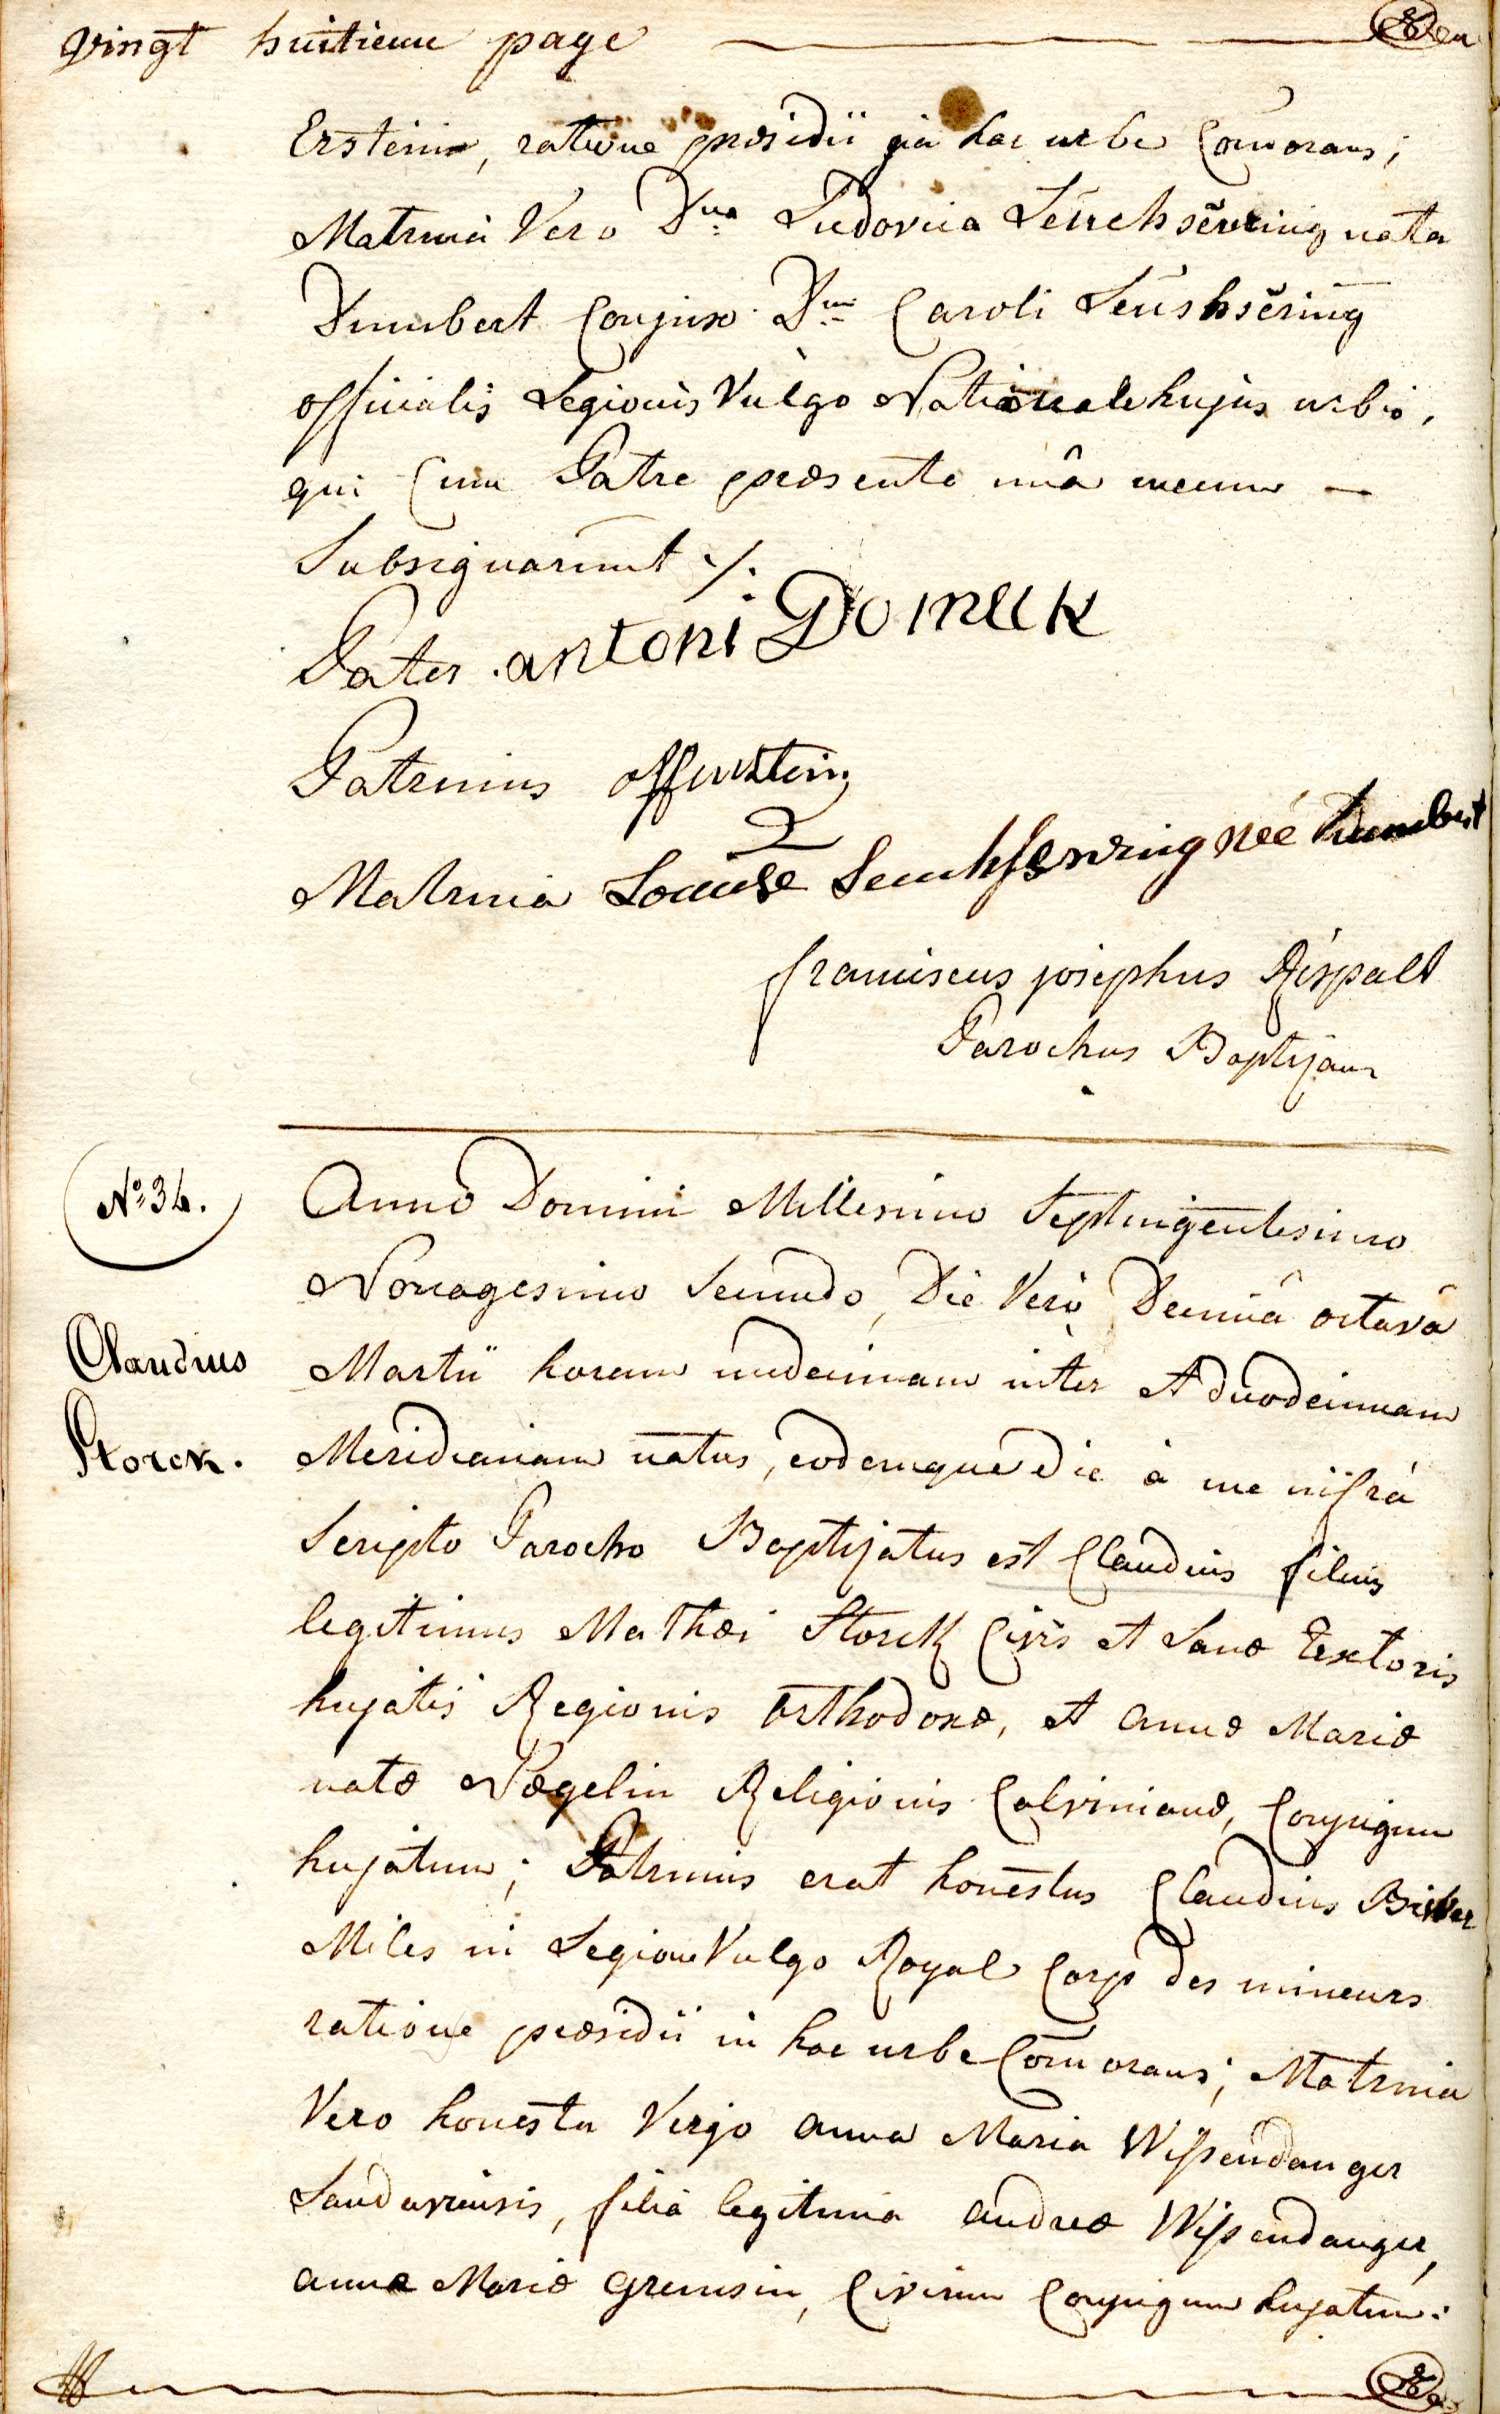 vingt huitieme page
Erstein, ratione præsidii in hac urbe Com̄orans;
Matrina Vero Dna Ludovica Leuchsenring nata
Humbert Conjux Dni Caroli Leuchsering
officialis Legionis Vulgo Nationale hujus urbis,
qui Cum Patre præsente unâ mecum —
Subsignarunt ./.
Pater antoni Domeck
Patrinus offenstein
Matrina Louise Leuchsenring neé humbert
franciscus josephus Rispalt
Parochus Baptizans
No: 34.
Claudius
Storck.
Anno Domini Millesimo Septingentesimo
Nonagesimo Secundo, Die Verò Decimâ octavâ
Martii horam undecimam inter et duodecimam
Meridianam natus, eodemque Die à me infrà
Scripto Parocho Baptizatus est Claudius filius
legitimus Mathæi Storck Civis et Lanæ Textoris
hujatis Regionis orthodoxæ, et annæ Mariæ
natæ Nægelin Religionis Calvinianæ, Conjugum
hujatum; Patrinus erat honestus Claudius
Miles in Legione Vulgo Royal Corps des mineurs
ratione præsidii in hac urbe Com̄orans; Matrina
Vero honesta Virgo anna Maria Wissendanger
Landaviensis, filia legitima andreæ Wissendanger,
annæ Mariæ Gremsin, Civium Conjugum hujatum: